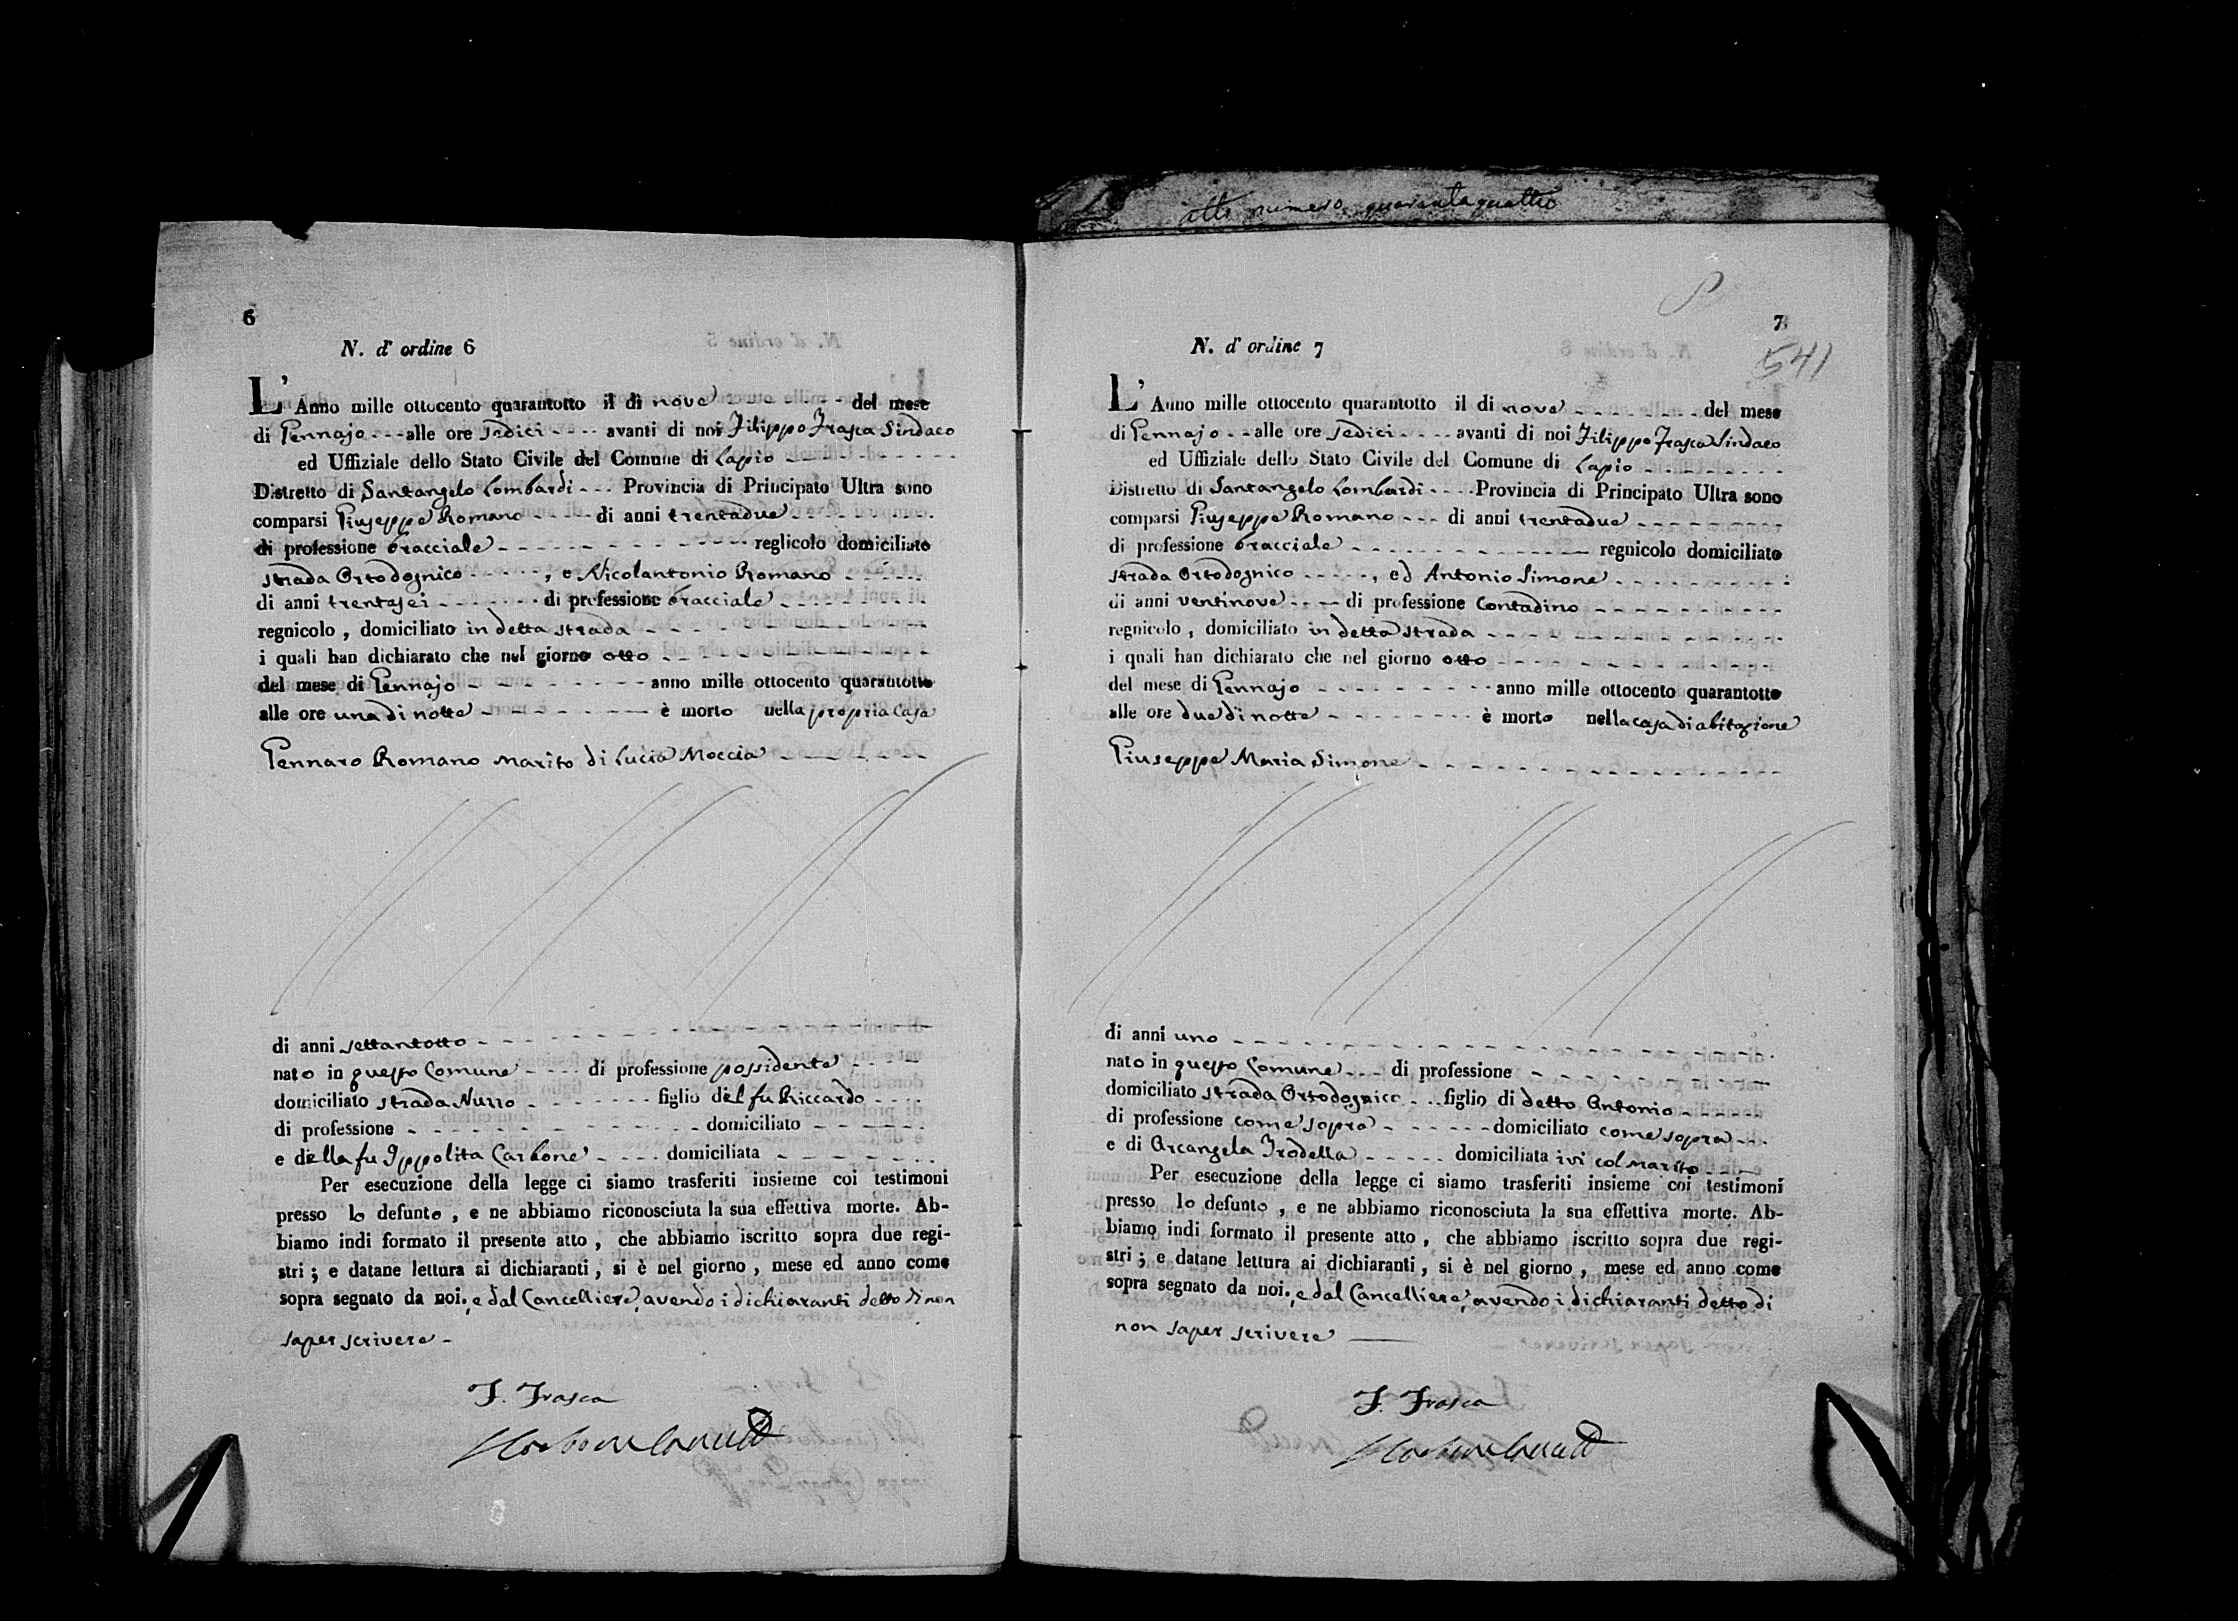 atto numero quarantaquattro
6
N. d' ordine 6
L'Anno mille ottocento quarantotto il dì nove del mese
di Gennajo alle ore sedici avanti di noi Filippo Frasca Sindaco
ed Uffiziale dello Stato Civile del Comune di Lapio
Distretto di Santangelo Lombardi Provincia di Principato Ultra sono
comparsi Giuseppe Romano di anni trentadue
di professione bracciale reglicolo domiciliato
strada Ortodognico, e Nicolantonio Romano
di anni trentasei di professione bracciale
regnicolo, domiciliato in detta strada
i quali han dichiarato che nel giorno otto
del mese di Gennajo anno mille ottocento quarantotto
alle ore una di notte è morto nella propria casa
Gennaro Romano marito di Lucia Moccia
di anni settantotto
nato in questo Comune di professione possidente
domiciliato strada Nurro figlio del fu Riccardo
di professione domiciliato
e della fu Ippolita Carbone domiciliata
Per esecuzione della legge ci siamo trasferiti insieme coi testimoni
presso lo defunto, e ne abbiamo riconosciuta la sua effettiva morte. Ab-
biamo indi formato il presente atto, che abbiamo iscritto sopra due regi-
stri; e datane lettura ai dichiaranti, si è nel giorno, mese ed anno come
sopra segnato da noi, e dal Cancelliere, avendo i dichiaranti detto di non
saper scrivere
F. Frasca
7
541
N. d' ordine 7
L'Anno mille ottocento quarantotto il di nove del mese
di Gennajo alle ore sedici avanti di noi Filippo Frasca Sindaco
ed Uffiziale dello Stato Civile del Comune di Lapio
Distretto di Santangelo Lombardi Provincia di Principato Ultra sono
comparsi Giuseppe Romano di anni trentadue
di professione bracciale regnicolo domiciliato
strada Ortodognico, ed Antonio Simone
di anni ventinove di professione Contadino
regnicolo, domiciliato in detta strada
i quali han dichiarato che nel giorno otto
del mese di Gennajo anno mille ottocento quarantotto
alle ore due di notte è morto nella casa di abitazione
Giuseppe Maria Simone
di anni uno
nato in questo Comune di professione
domiciliato strada Ortodognico figlio di detto Antonio
di professione come sopra domiciliato come sopra
e di Arcangela Trodella domiciliata ivi col marito
Per esecuzione della legge ci siamo trasferiti insieme coi testimoni
presso lo defunto, e ne abbiamo riconosciuta la sua effettiva morte. Ab-
biamo indi formato il presente atto, che abbiamo iscritto sopra due regi-
stri; e datane lettura ai dichiaranti, si è nel giorno, mese ed anno come
sopra segnato da noi, e dal Cancelliere, avendo i dichiaranti detto di
non saper scrivere
F. Frasca